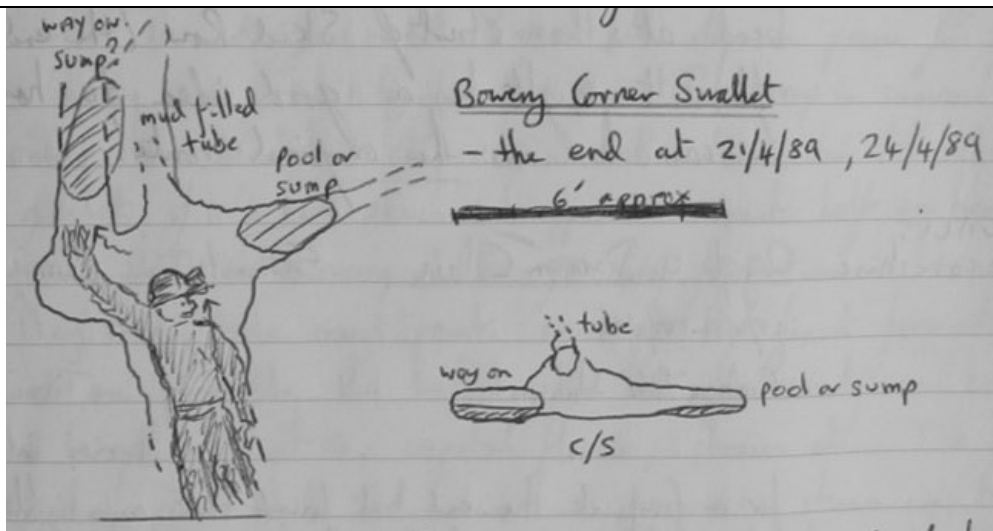 way on?
sump?
mud filled
tube
pool or
sump
Bowery Corner Swallet
- the end at 21/4/89, 24/4/89
6' approx
tube
way on
pool or sump
C/S